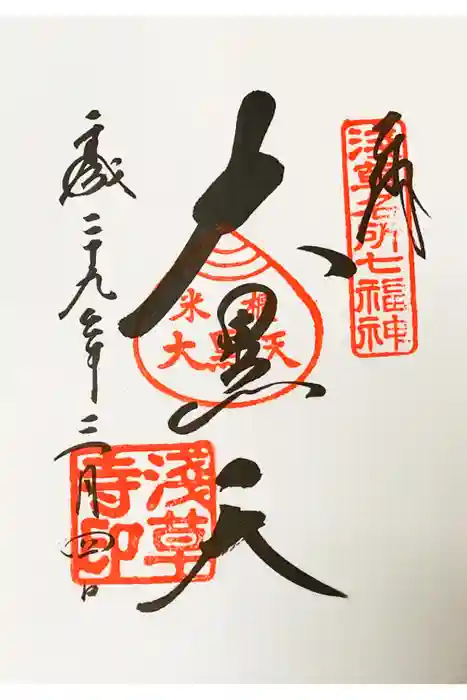 奉拝
淺草名所七福神
大黒天
米櫃
大黒天
平成二十九年 月四日
淺草
寺印